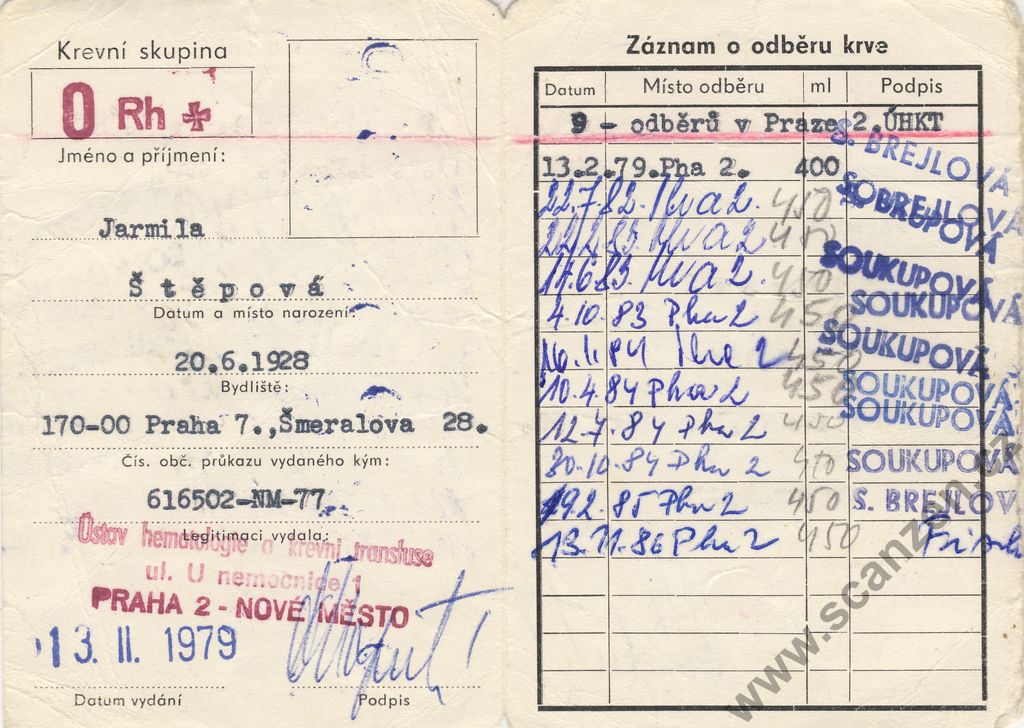 Krevní skupina
0 Rh +
Jméno a příjmení:
Jarmila
Štěpová
Datum a místo narození:
20.6.1928
Bydliště:
170-00 Praha 7.,Šmeralova 28.
Čís. obč. průkazu vydaného kým:
616502-NM-77
Legitimaci vydala:
Ústav hematologie a krevní transfuse
ul. U nemocnice 1
PRAHA 2 - NOVÉ MĚSTO
13. II. 1979
Datum vydání Podpis
Záznam o odběru krve
Datum Místo odběru ml Podpis
9 - odběrů v Praze 2.ÚHKT
13.2.79.Pha 2. 400 S. BREJLOVÁ
22.7.82. 2. 450 BREJLOVÁ
83. 2 450 SOUKUPOVÁ
17.6.83. 2. 450 SOUKUPOVÁ
4.10.83 Pha 2 450 SOUKUPOVÁ
16.1.84 Pha 2 450 SOUKUPOVÁ
10.4.84 Pha 2 450 SOUKUPOVÁ
12.7.84 Pha 2 450 SOUKUPOVÁ
30.10.84 Pha 2 SOUKUPOVÁ
19.2.85 Pha 2 450 S. BREJLOV
13.11.86 Pha 2 450
www.scanzen.cz